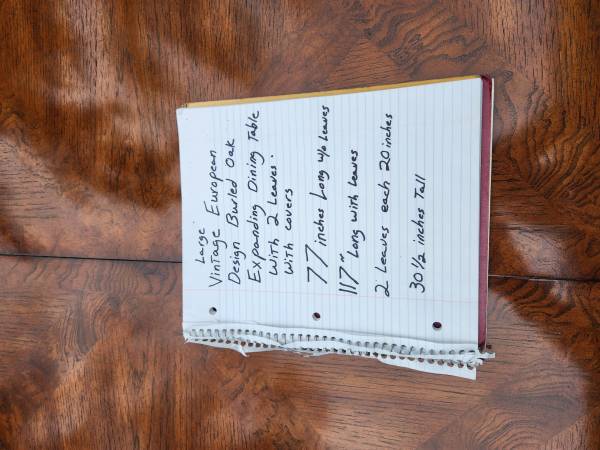 Large
Vintage European
Design Burled Oak
Expanding Dining Table
With 2 Leaves.
With covers
77 inches Long w/o Leaves
117" Long with Leaves
2 Leaves each 20 inches
30 1/2 inches Tall